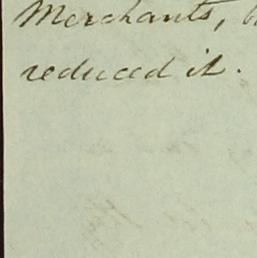 Merchants,
reduced it.